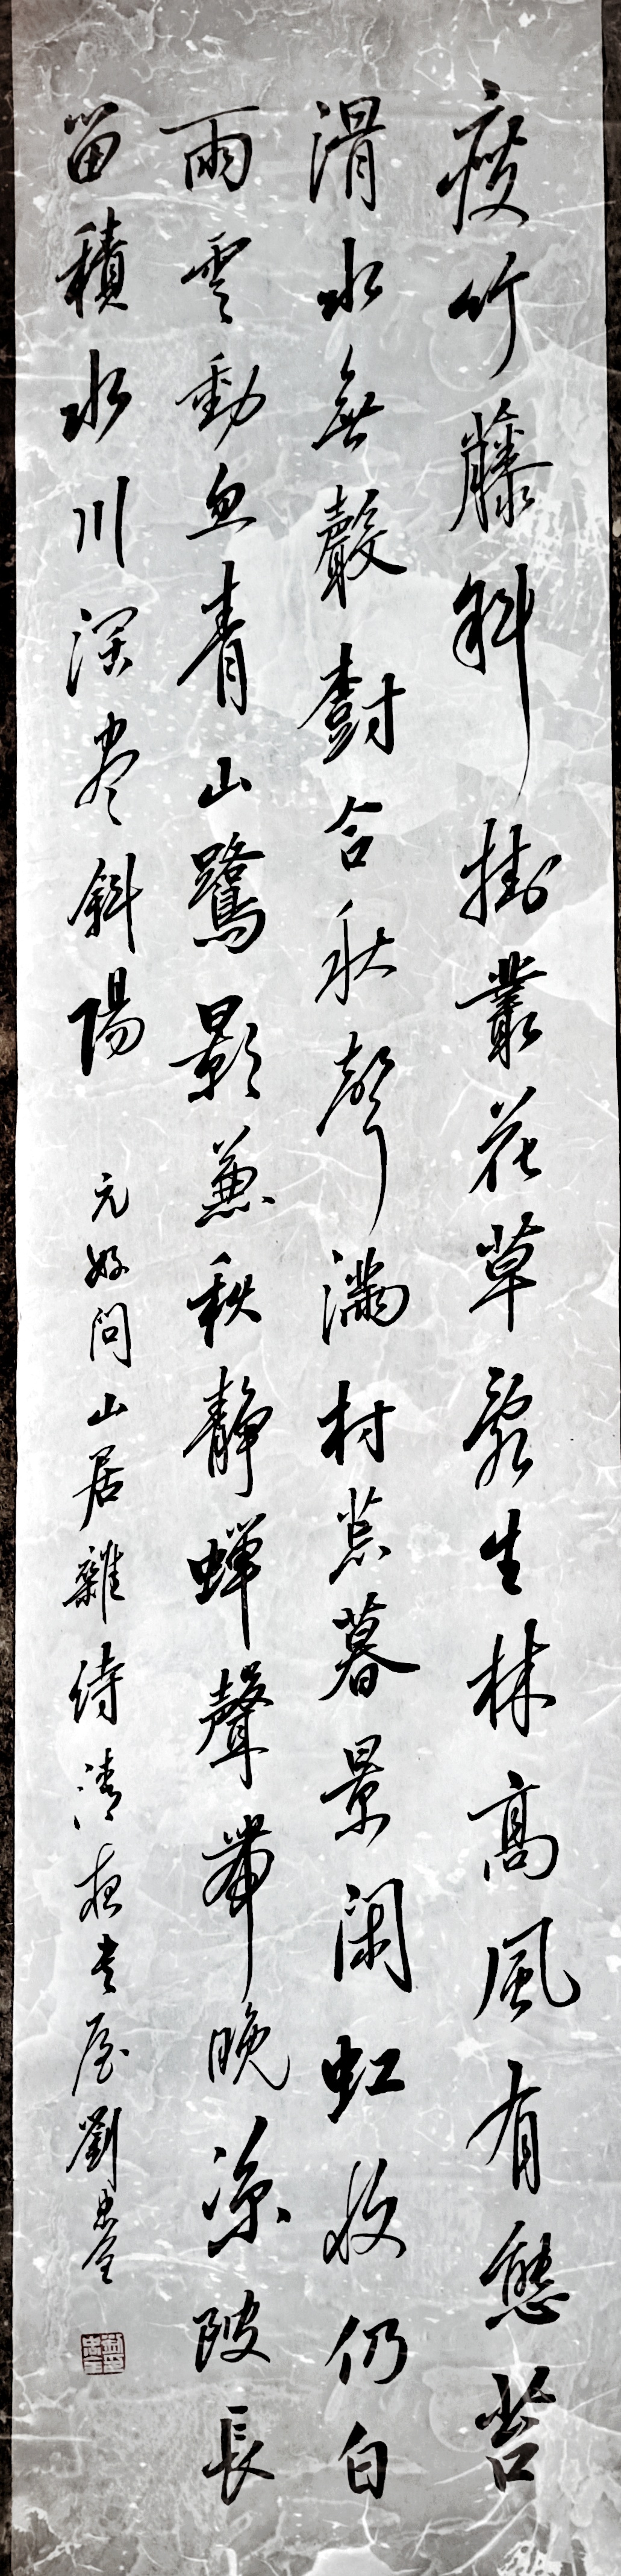 瘦竹藤斜掛叢花草亂生林高風有態苔
滑水無聲樹合秋聲滿村荒暮景閑虹收仍白
雨雲動忽青山鷺影兼秋靜蟬聲帶晚涼陂長
留積水川深盡斜陽 元好問山居雜詩 清夜書屋劉忠全